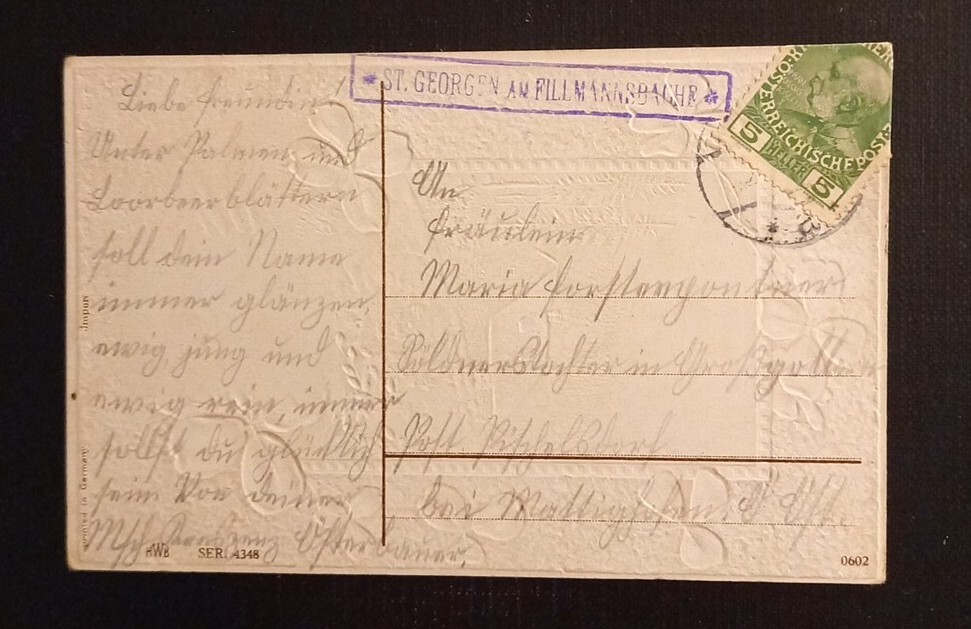 * ST. GEORGEN AM FILLMANNSBACHE *
ÖSTERREICHISCHE POST
5 HELLER 5
Liebe Freundin!
Unter Palmen und
Loorbeerblättern
soll dein Name
immer glänzen,
ewig jung und
ewig rein, immer
sollst du glücklich
sein Von deiner
Osterbauer.
An
Fräulein
Maria Forstenpointner
Söldnerstochter in
Post Pischelsdorf
bei Mattighofen O. Öst.
Import
Printed in Germany
HWB SER. 4348
0602